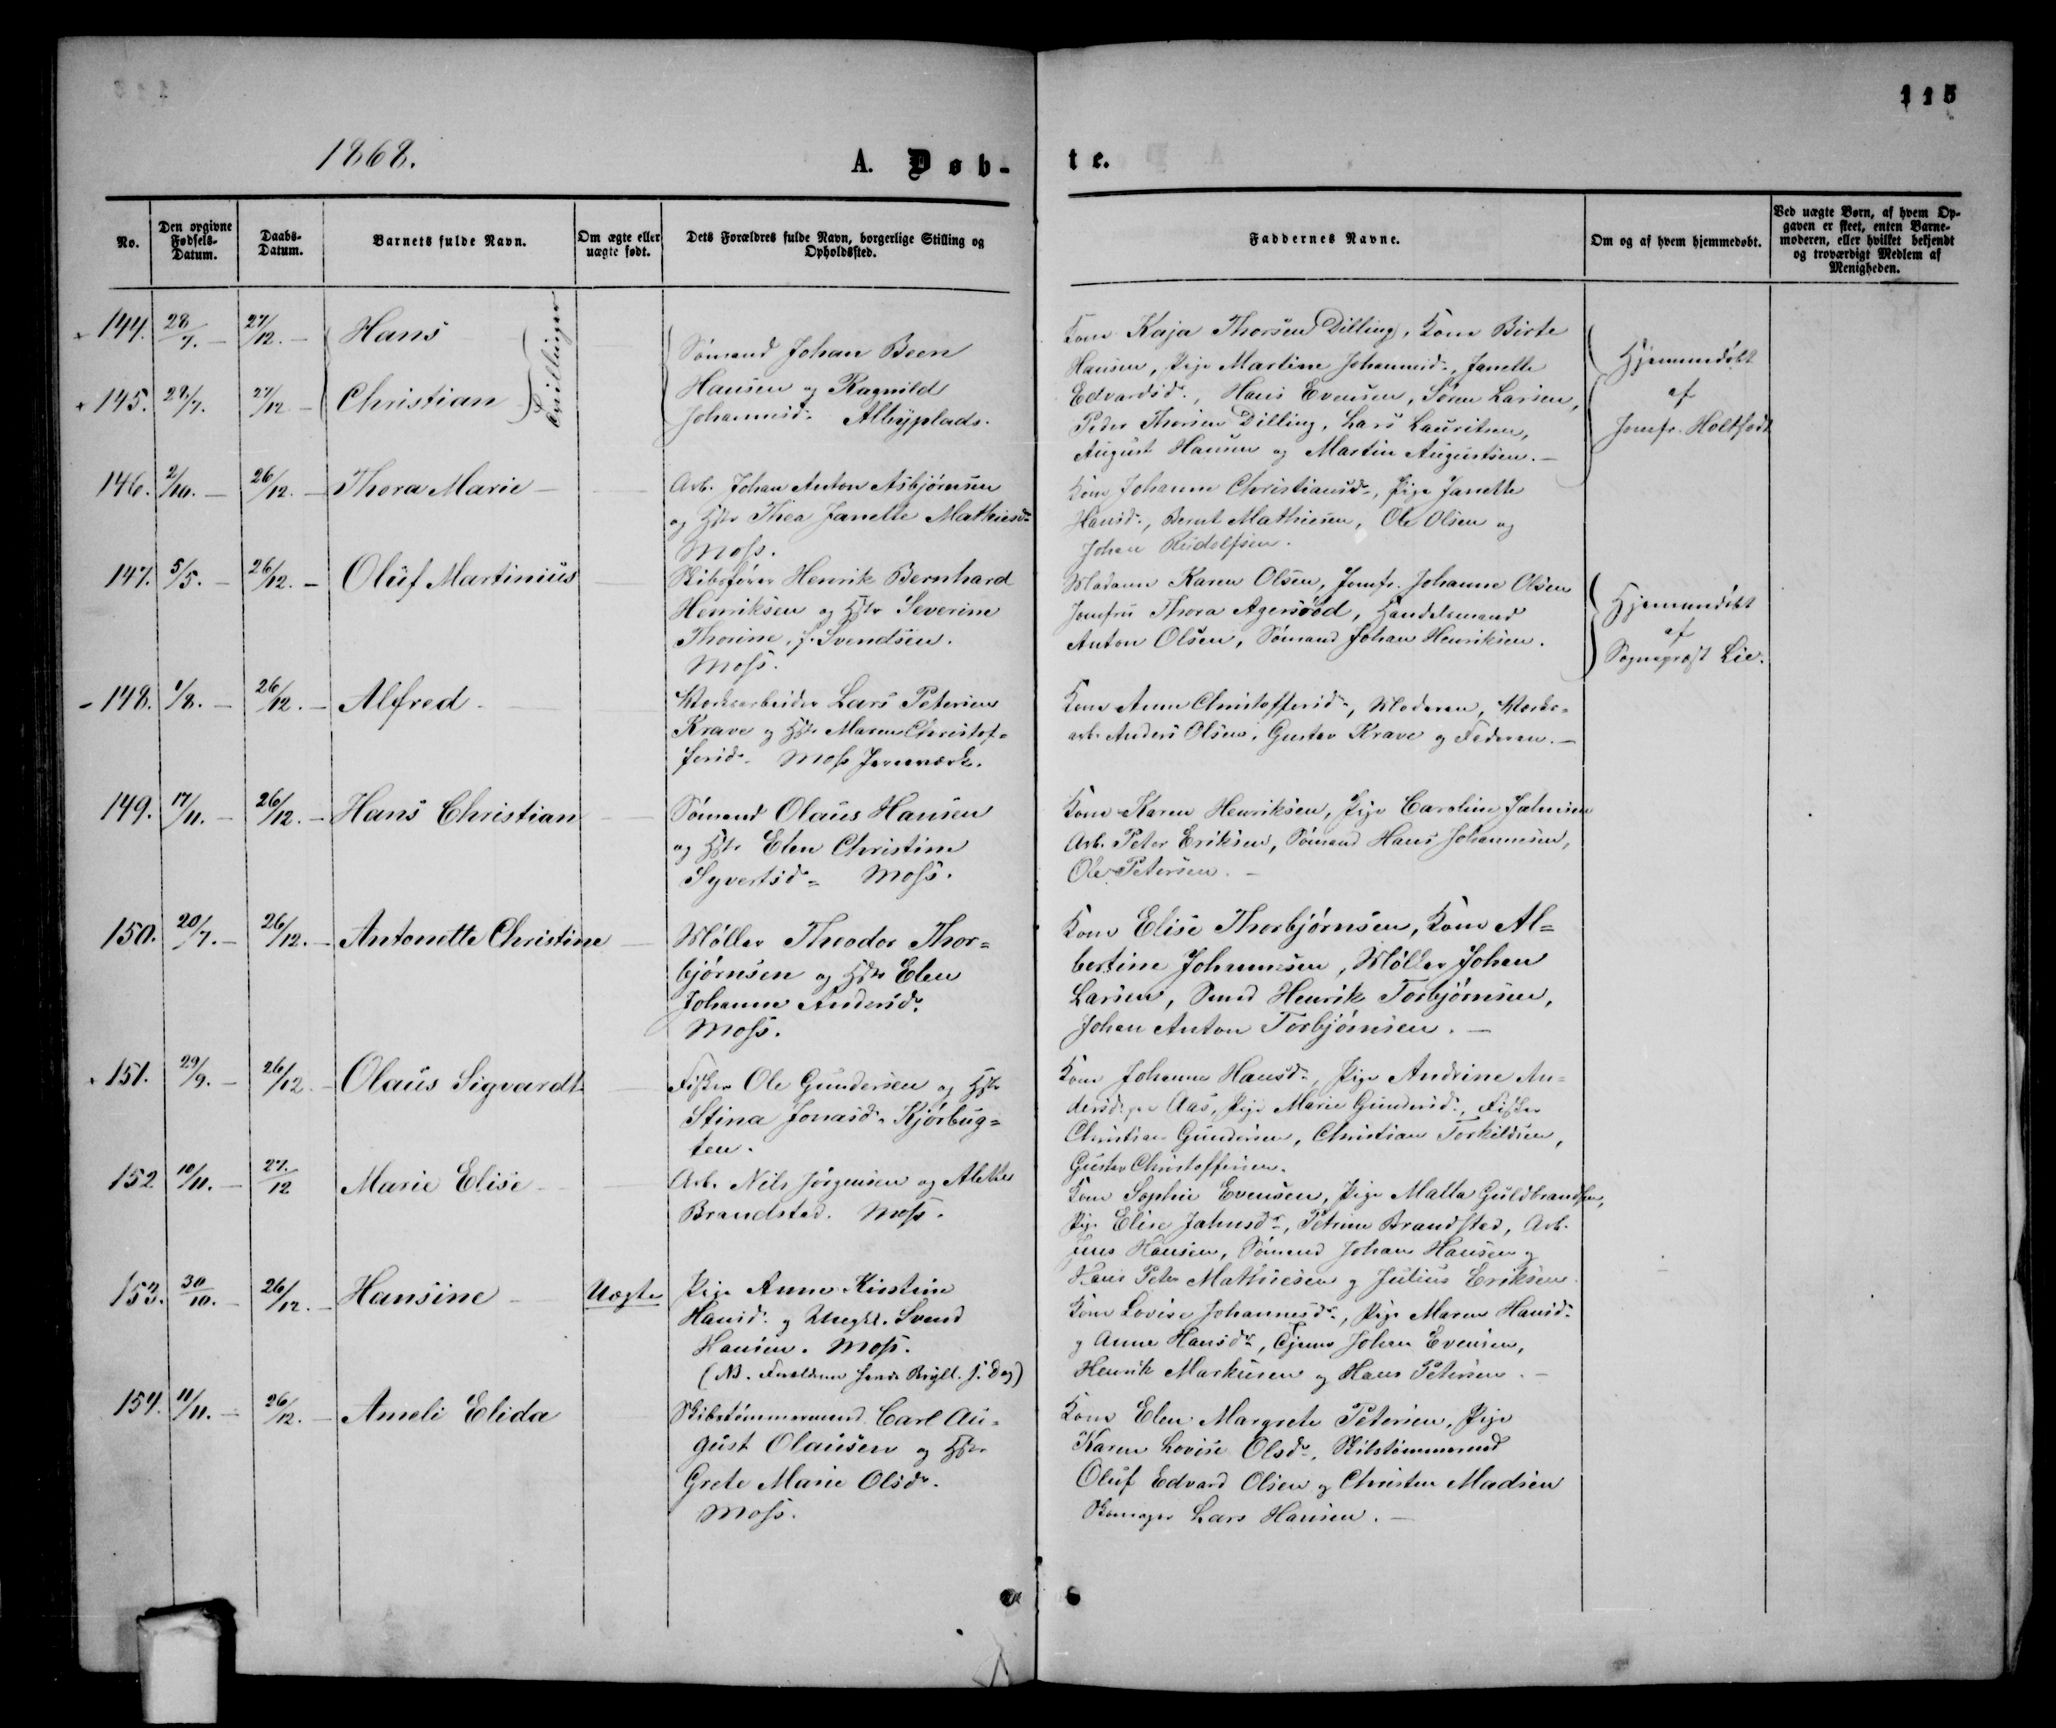 115
1868.
A. Døb-
te.
No.
Den opgivne Fødsels-Datum.
Daabs-Datum.
Barnets fulde Navn.
Om ægte eller uægte født.
Dets Forældres fulde Navn, borgerlige Stilling og Opholdssted.
Faddernes Navne.
Om og af hvem hjemmedøbt.
Ved uægte Børn, af hvem Opgaven er skeet, enten Barnemoderen, eller hvilket bekjendt og troværdigt Medlem af Menigheden.
144. 28/7. - 27/12. - Hans
145. 28/7. 27/12 - Christian
Tvillinger
Sømand Johan Been
Hansen og Ragnild
Johannesd. Albyplads.
Kone Kaja Thorsen Dilling, Kone Birte
Hansen, Pige Martine Johannesd., Janette
Edvardsd., Hans Evensen, Søren Larsen,
Peder Thorsen Dilling, Lars Lauritsen,
August Hansen og Martin Augustsen. -
Hjemmedøbt
af
Jomfr. Holtfodt
146. 2/10. - 26/12. - Thora Marie -
Arb. Johan Anton Asbjørnsen
og Hstr Thea Janette Mathiesd.
Moss.
Kone Johanne Christiansd., Pige Janette
Hansd., Bernt Mathiesen, Ole Olsen og
Johan Rudolfsen.
147. 5/5. - 26/12. - Oluf Martinius
Skibsfører Henrik Bernhard
Henriksen og Hstr Severine
Thorine, f. Svendsen.
Moss.
Madam Karen Olsen, Jomfr. Johanne Olsen
Jomfru Thora Agersööd, Handelsmand
Anton Olsen, Sømand Johan Henriksen.
Hjemmedøbt
af
Sognepræst Lie.
- 148. 1/8. - 26/12. - Alfred -
Værksarbeider Lars Petersen
Krave og Hstr Maren Christof=
fersd. Moss Jernværk.
Kone Anne Christoffersd., Moderen, Værks=
arb. Anders Olsen, Gustav Krave og Faderen. -
149. 17/11. - 26/12. - Hans Christian
Sømand Olaus Hansen
og Hstr Elen Christine
Syvertsd. Moss.
Kone Karen Henriksen, Pige Caroline Jahnsen
Arb. Peter Eriksen, Sømand Hans Johannesen,
Ole Petersen. -
150. 20/7. - 26/12. - Antonette Christine
Møller Theodor Thor=
bjørnsen og Hstr Elen
Johanne Andersd.
Moss.
Kone Elise Thorbjørnsen, Kone Al=
bertine Johannesen, Møller Johan
Larsen, Smed Henrik Torbjørnsen,
Johan Anton Torbjørnsen. -
151. 29/9. - 26/12 - Olaus Sigvardt
Fisker Ole Gundersen og Hstr
Stina Jonasd. Kjørbug=
ten.
Kone Johanne Hansd., Pige Andrine An=
dersd. Aas, Pige Marie Gundersd., Fisker
Christian Gundersen, Christian Torkildsen,
Gustav Christoffersen.
152 10/11. - 27./12 Marie Elise -
Arb. Nils Jørgensen og Alette
Brandstad. Moss.
Kone Sophie Evensen, Pige Malla Guldbrandsen,
Pige Elise Jahnsd., Petrine Brandstad, Arb.
Jens Hansen, Sømand Johan Hansen og
Hans Peter Mathiesen og Julius Eriksen
153. 30/10. - 26/12. - Hansine - Uægte
Pige Anne Kirstine
Hansd. og Ungkl. Svend
Hansen. Moss.
(NB. Forældrene havde Bryll. s. Dag)
Kone Lovise Johannesd., Pige Maren Hansd.
og Anne Hansd., Tjener Johan Evensen,
Henrik Markusen og Hans Petersen. -
154. 11/11. - 26/12. - Ameli Elida
Skibstømmermand Carl Au=
gust Olausen og Hstr
Grete Marie Olsd.
Moss.
Kone Elen Margrete Petersen, Pige
Karen Lovise Olsd., Skibstømmermd
Oluf Edvard Olsen og Christen Madsen
Skomager Lars Hansen. -